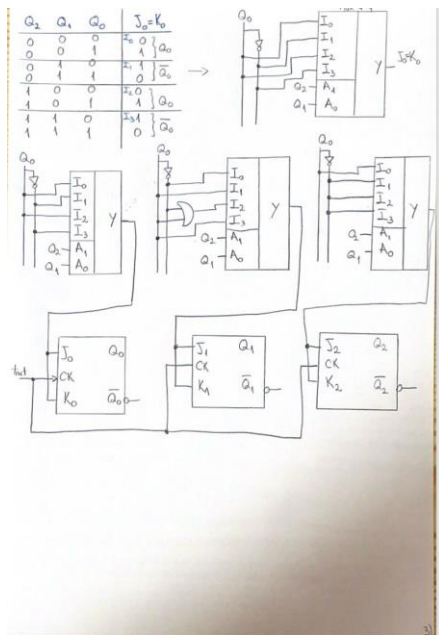 Q2 Q1 Q0 J0=K0
0 0 0 I0 0
0 0 1 1 } Q0
0 1 0 I1 1
0 1 1 0 } Q̅0
1 0 0 I2 0
1 0 1 1 } Q0
1 1 0 I3 1
1 1 1 0 } Q̅0
Q0
I0
I1
I2
I3
Q2 A1
Q1 A0
Y
J0=K0
Q0
I0
I1
I2
I3
Q2 A1
Q1 A0
Y
Q0
I0
I1
I2
I3
Q2 A1
Q1 A0
Y
Q0
I0
I1
I2
I3
Q2 A1
Q1 A0
Y
J0 Q0
CK
K0 Q̅0
J1 Q1
CK
K1 Q̅1
J2 Q2
CK
K2 Q̅2